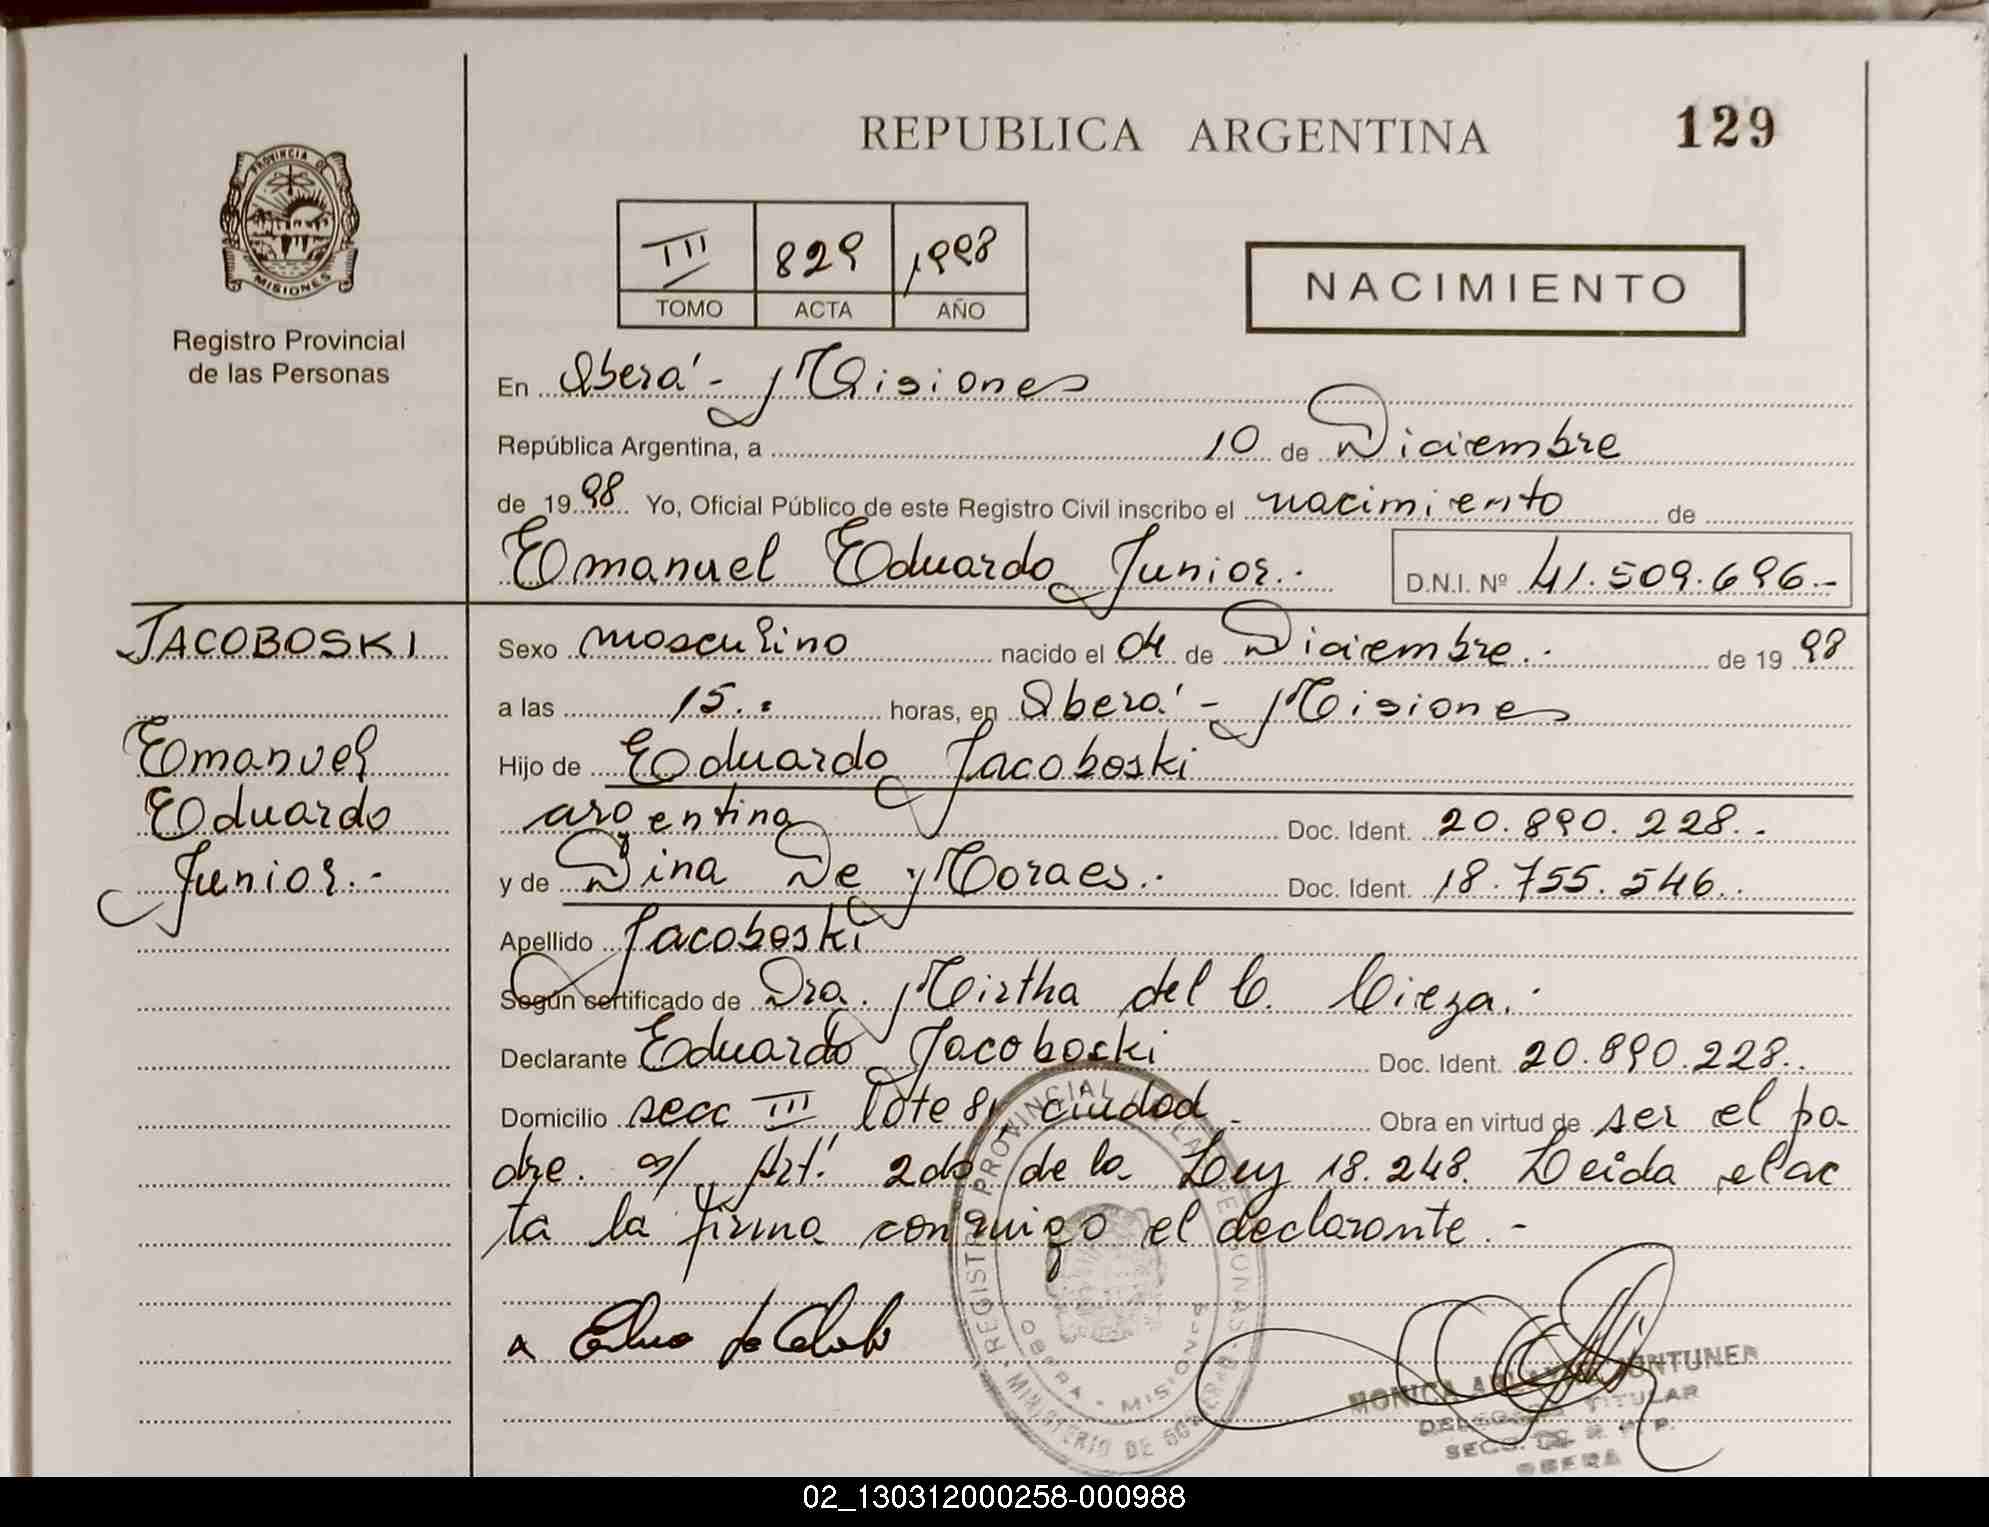 REPUBLICA ARGENTINA
129
PROVINCIA D
MISIONES
Registro Provincial
de las Personas
III 829 1998
TOMO ACTA AÑO
NACIMIENTO
En Oberá - Misiones
República Argentina, a 10 de Diciembre
de 1998 Yo, Oficial Público de este Registro Civil inscribo el nacimiento de
Emanuel Eduardo Junior.- D.N.I. Nº 41.509.696.-
JACOBOSKI
Emanuel
Eduardo
Junior.-
Sexo masculino nacido el 04 de Diciembre.- de 1998
a las 15.- horas, en Oberá - Misiones
Hijo de Eduardo Jacoboski
argentina Doc. Ident. 20.890.228.-
y de Dina De Moraes.- Doc. Ident. 18.755.546.-
Apellido Jacoboski
Según certificado de Dra. Mirtha del C. Cieza.-
Declarante Eduardo Jacoboski Doc. Ident. 20.890.228.-
Domicilio secc III lote 81, ciudad - Obra en virtud de ser el pa-
dre. s/ Art. 2do de la Ley 18.248. Leida el ac
ta la firma conmigo el declarante.-
REGISTRO PROVINCIAL DE LAS PERSONAS
MINISTERIO DE GOBIERNO
OBERA - MISIONES
MONICA
TITULAR
OBERA
02_130312000258-000988